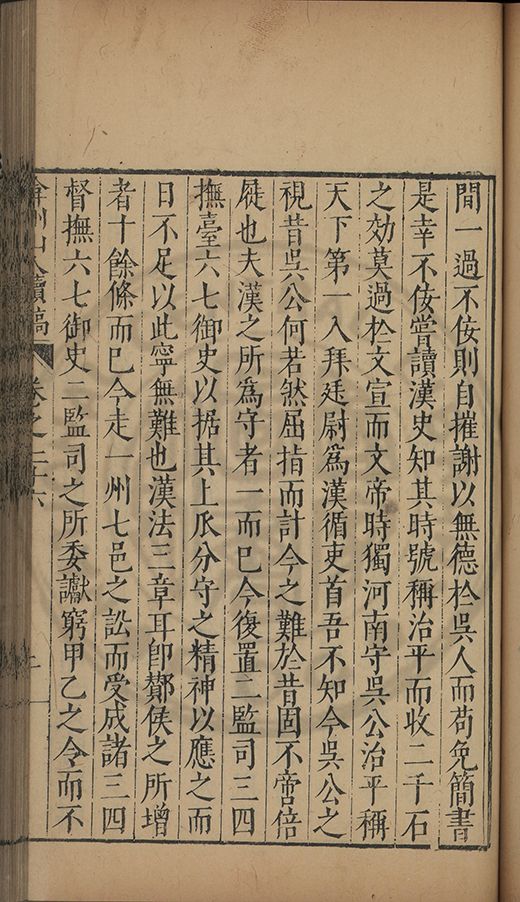 間一過不佞則自摧謝以無德於吳人而苟免簡書
是幸不佞嘗讀漢史知其時號稱治平而收二千石
之効莫過於文宣而文帝時獨河南守吳公治平稱
天下第一入拜廷尉爲漢循吏首吾不知今吳公之
視昔吳公何若然屈指而計今之難於昔固不啻倍
屣也夫漢之所爲守者一而已今復置二監司三四
撫臺六七御史以据其上瓜分守之精神以應之而
日不足以此寧無難也漢法三章耳卽酇侯之所增
者十餘條而已今走一州七邑之訟而受成諸三四
督撫六七御史二監司之所委讞窮甲乙之令而不
弇州山人續稿 卷之三十六